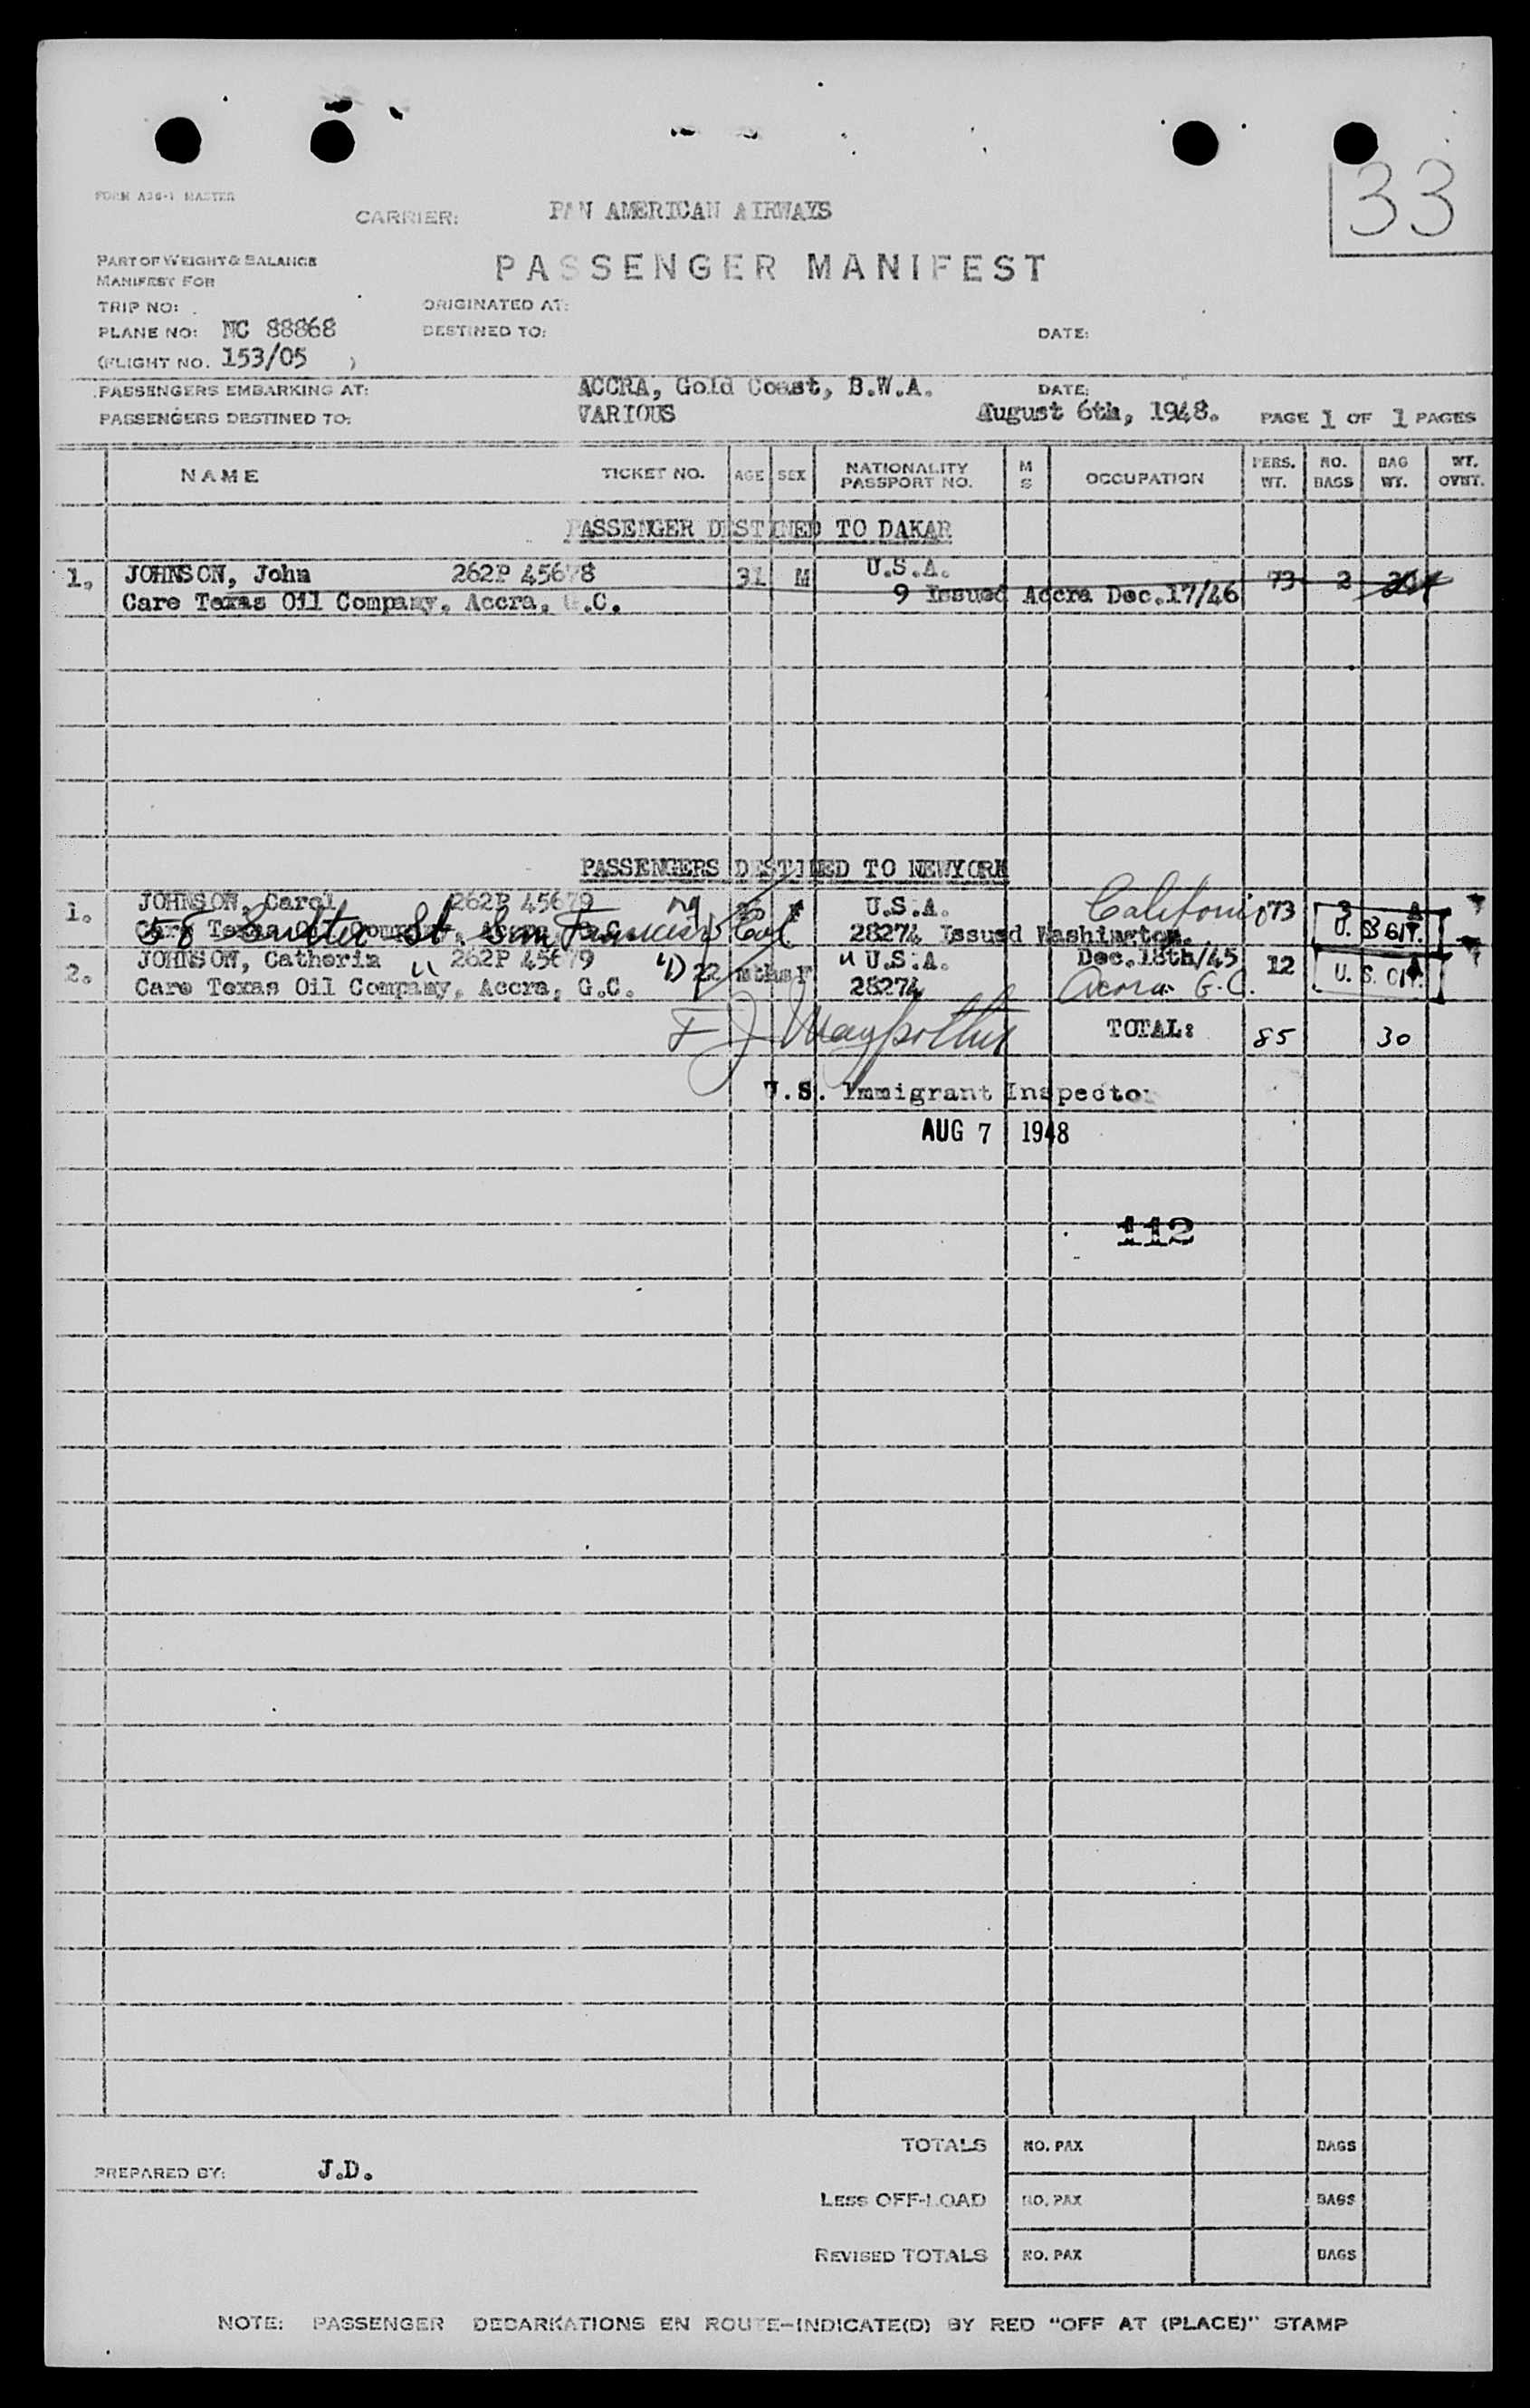 33
FORM A36-1 MASTER
CARRIER: PAN AMERICAN AIRWAYS
PART OF WEIGHT & BALANCE
MANIFEST FOR
PASSENGER MANIFEST
TRIP NO: ORIGINATED AT:
PLANE NO: NC 88868 DESTINED TO: DATE:
(FLIGHT NO. 153/05 )
PASSENGERS EMBARKING AT: ACCRA, Gold Coast, B.W.A. DATE:
PASSENGERS DESTINED TO: VARIOUS August 6th, 1948. PAGE 1 OF 1 PAGES
NAME TICKET NO. AGE SEX NATIONALITY PASSPORT NO. M S OCCUPATION PERS. WT. NO. BAGS BAG WT. WT. OVWT.
PASSENGER DESTINED TO DAKAR
1. JOHNSON, John 262P 45678 31 M U.S.A. 73 2
Care Texas Oil Company, Accra, G.C. 9 Issued Accra Dec.17/46
PASSENGERS DESTINED TO NEWYORK
1. JOHNSON, Carol 262P 45679 F U.S.A. California 73 3
Care Texas Oil Company, Accra, G.C. 28274 Issued Washington. U. S. CIT.
58 Sutter St. San Francisco, Cal
2. JOHNSON, Catherin " 262P 45679 22 mths F " U.S.A. Dec.18th/45 12 U. S. CIT.
Care Texas Oil Company, Accra, G.C. 28274 Accra G.C.
F J TOTAL: 85 30
U.S. Immigrant Inspector
AUG 7 1948
112
TOTALS NO. PAX BAGS
PREPARED BY: J.D.
LESS OFF-LOAD NO. PAX BAGS
REVISED TOTALS NO. PAX BAGS
NOTE: PASSENGER DEBARKATIONS EN ROUTE-INDICATE(D) BY RED "OFF AT (PLACE)" STAMP